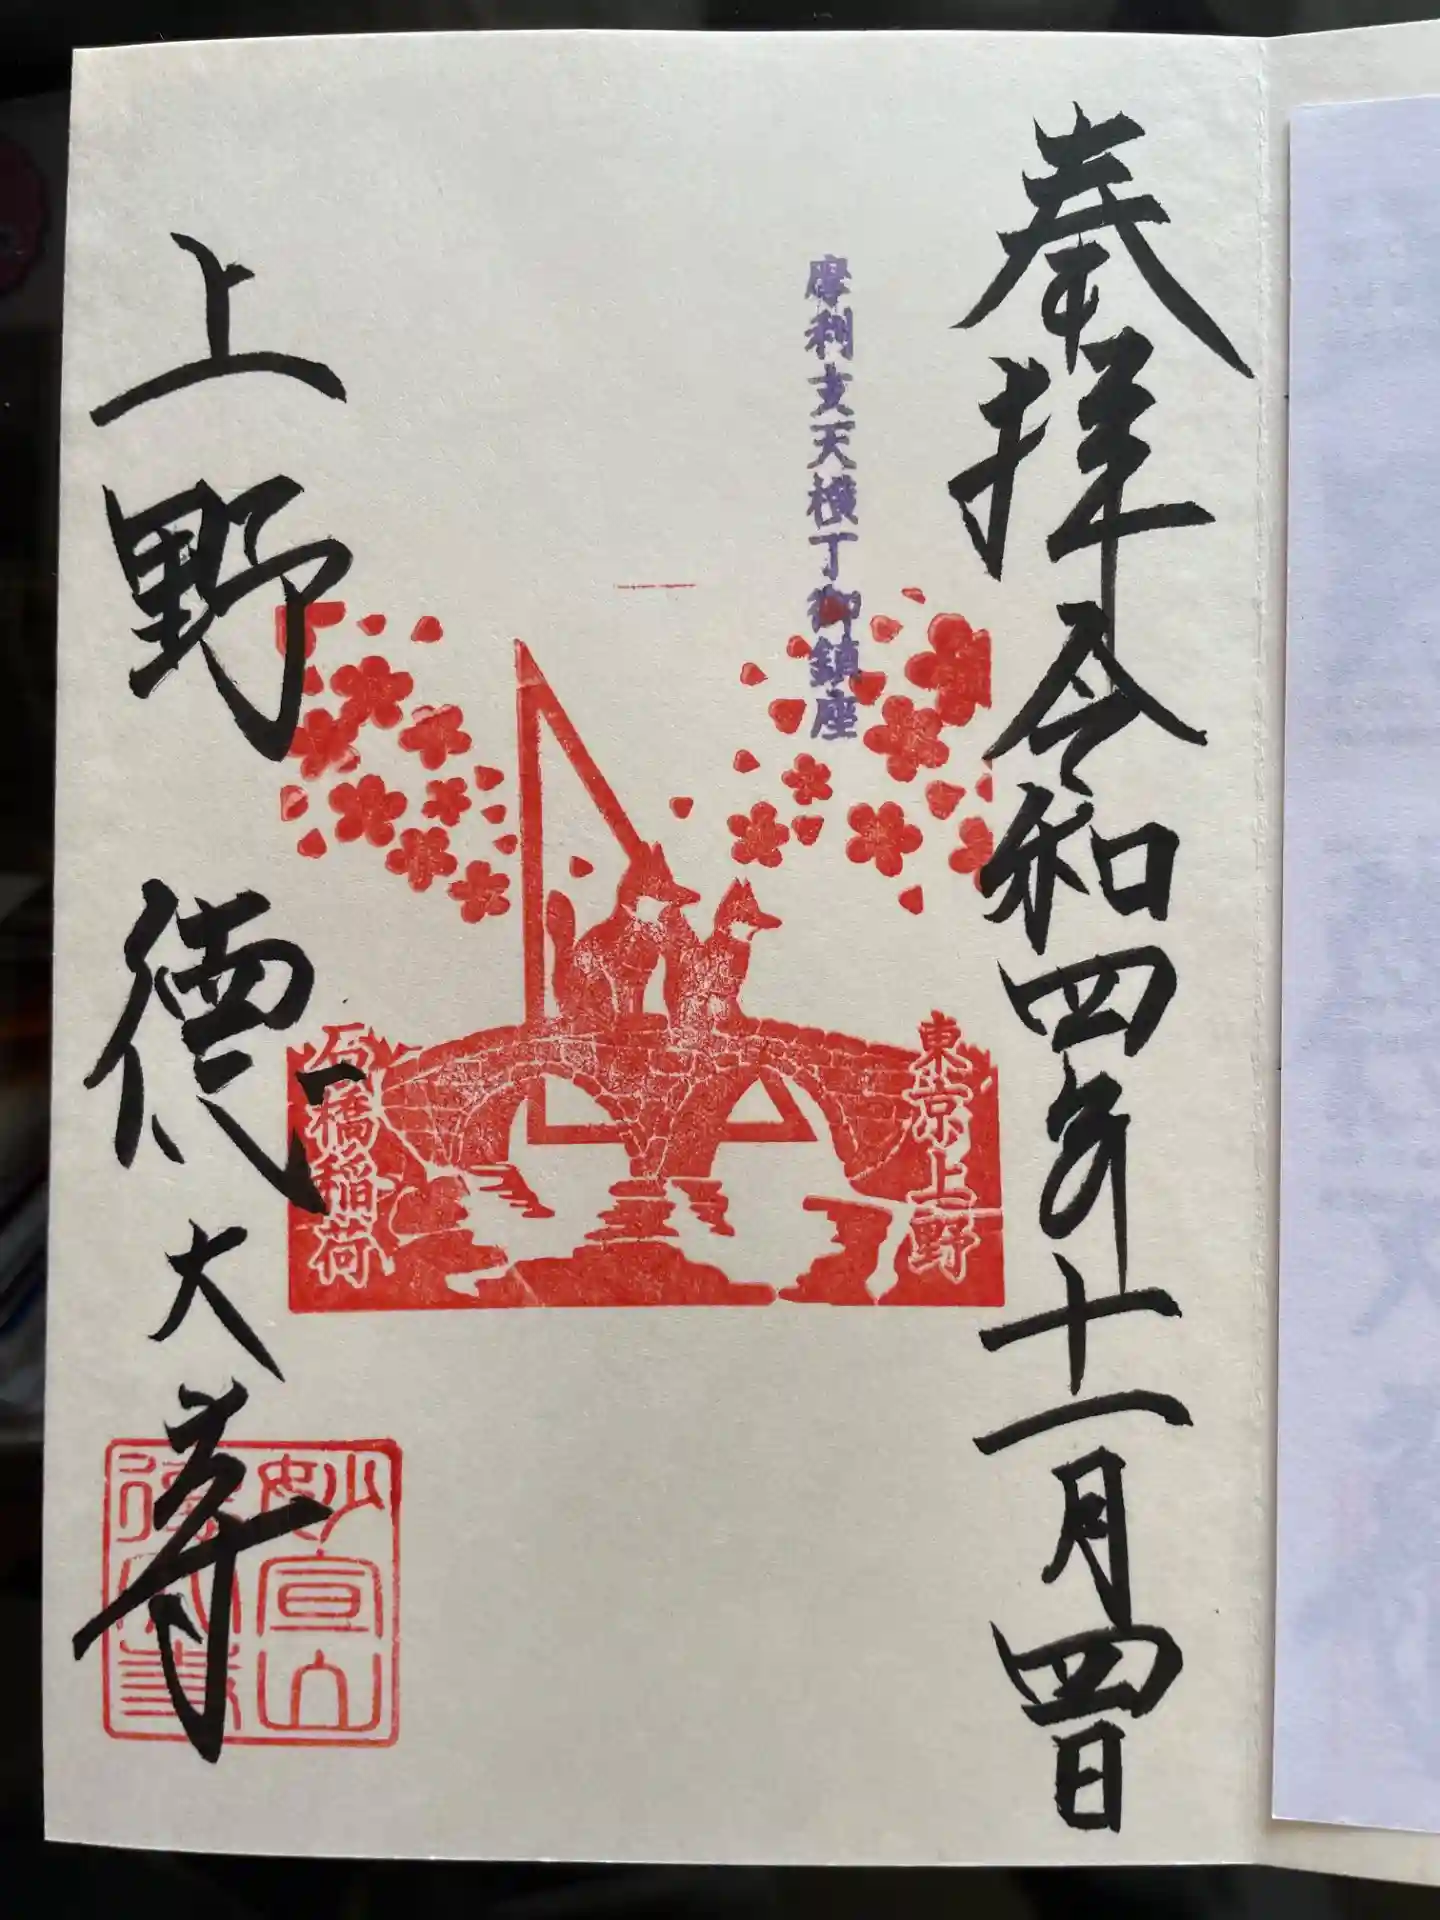 奉拝令和四年十一月四日
摩利支天横丁御鎮座
東京上野
石橋稲荷
上野 徳大寺
妙宣山
徳大寺